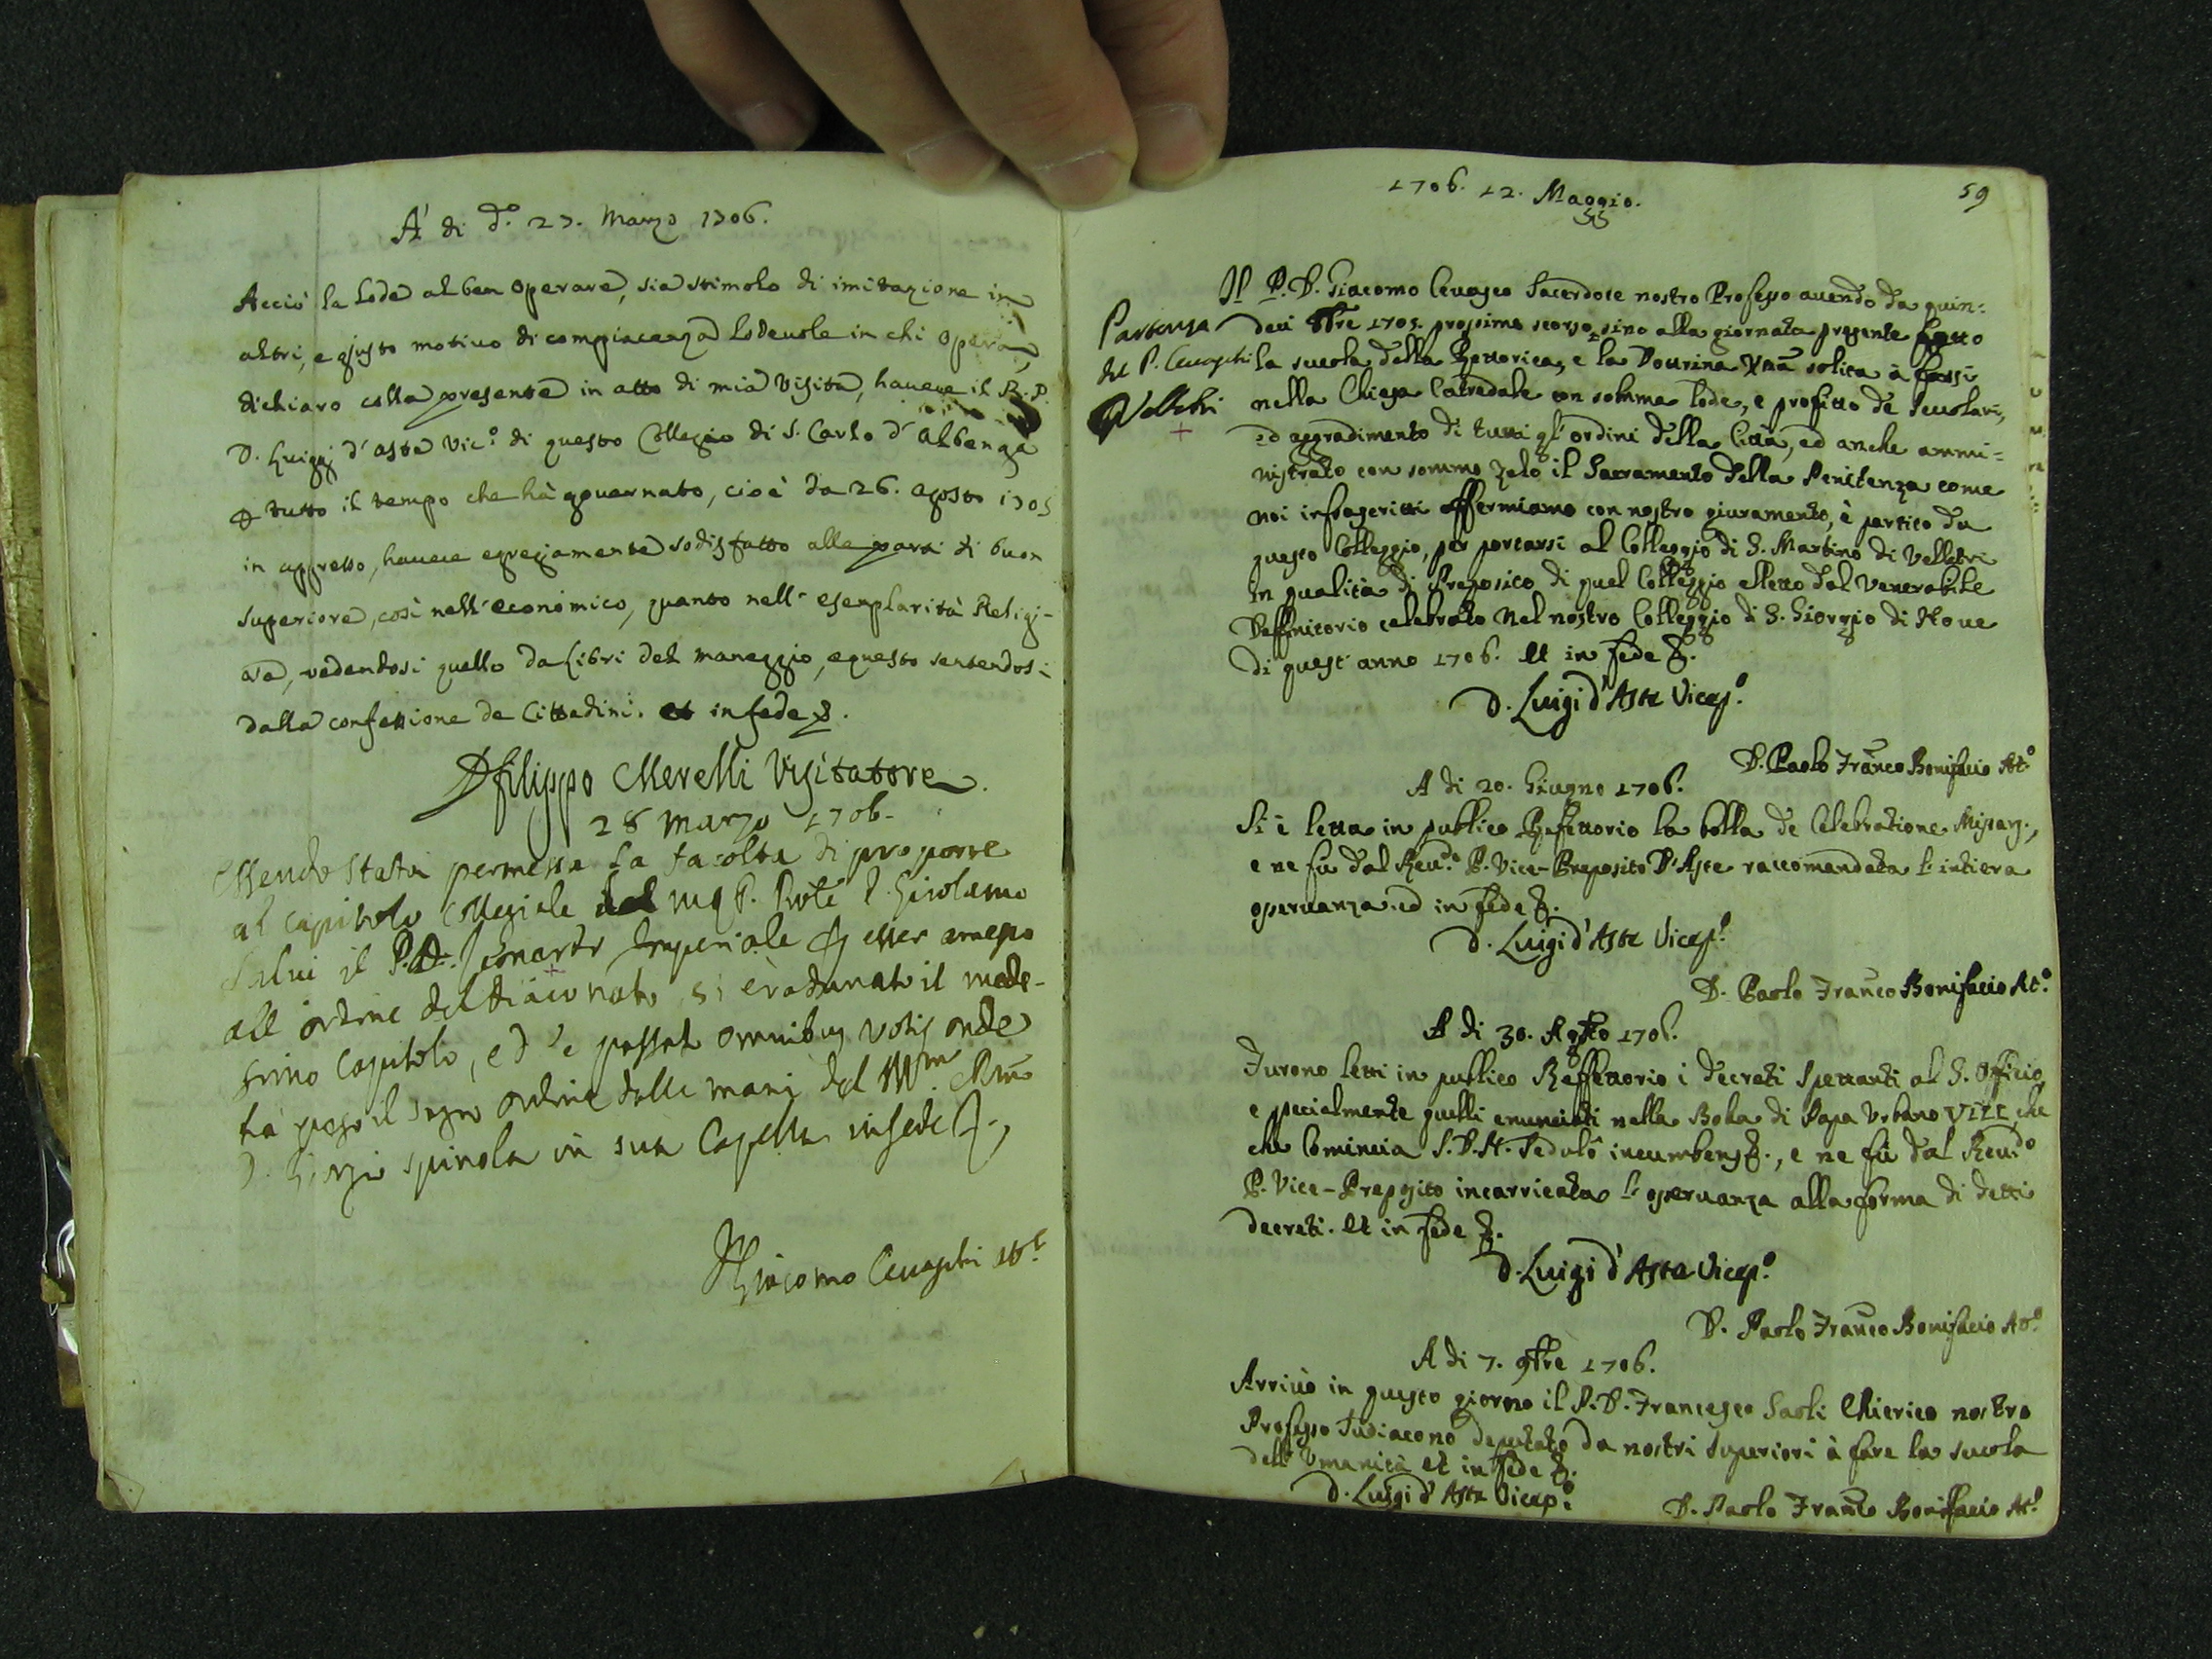 A' di d.º 27. Marzo 1706.
Acciò la Lode al ben operare, sia stimolo di imitazione in
altri, e giusto motivo di compiacenza Lodeuole in chi opera,
dichiaro colla presente in atto di mia Visita, hauere il R. P.
D. Luiggi d'aste Vic.º di questo Collegio di S. Carlo d'albenga
tutto il tempo che hà gouernato, cioè da 26. agosto 1705
in appresso, hauere egregiamente sodisfatto alle parti di buon
superiore, così nell'economico, quanto nell'esemplarità Religi-
osa, vedendosi quello da Libri del maneggio, e questo sentendosi
dalla confessione de Cittadini. et in fede &.
D Filippo Merelli Visitatore
28 Marzo 1706.
Essendo stata permessa la facolta di proporre
al Capitolo Collegiale dal P. D. Girolamo
Salui il P. D. Leonardo Imperiale esser amesso
all'ordine del diaconato, si è radunato il mede-
simo Capitolo, ed è passato omnibus votis onde
ha preso il sagro ordine dalle mani del
D. Giorgio Spinola in sua Capella in fede &.
D Giacomo Ceuaschi Att.º
1706. 12. Maggio.
59
Partenza
del P. Ceuaschi
Velletri
Il P. D. Giacomo Ceuasco Sacerdote nostro Professo auendo da quin:
deci 8bre 1705. prossimo scorso sino alla giornata presente fatto
la scuola della Rettorica, e la Dottrina Xna solita à farsi
nella Chiesa Catredale con somma lode, e profitto de scuolari,
ed aggradimento di tutti gl'ordini della Città, ed anche ammi=
nistrato con sommo zelo il Sacramento della Penitenza come
noi infrascritti affermiamo con nostro giuramento, è partito da
questo Colleggio, per portarsi al Colleggio di S. Martino di Velletri
in qualità di Preposito di quel Colleggio eletto dal Venerabile
Deffinitorio celebrato nel nostro Colleggio di S. Giorgio di Noue
di quest'anno 1706. et in fede &.
D. Luigi d'Aste Vicep.º
D. Paolo Franco Bonifacio Att.º
A di 20. Giugno 1706.
Si è letta in publico Refettorio la bolla de Celebratione Missar.,
e ne fù dal Reu.do P. Vice-Preposito D'Aste raccomandata l'intiera
osseruanza ed in fede &.
D. Luigi d'Aste Vicep.º
D. Paolo Franco Bonifacio Att.º
A di 30. Agsto 1706.
Furono letti in publico Reffettorio i decreti spettanti al S. Officio,
e specialmente quelli enunciati nella Bolla di Papa Urbano VIII che
che Comincia S.D.N. Sedulò incumbens &., e ne fù dal Reu.do
P. Vice-Preposito incarricata l'osseruanza alla forma di detti
decreti. et in fede &.
D. Luigi d'Aste Vicep.º
D. Paolo Franco Bonifacio Att.º
A di 7. 9bre 1706.
Arriuò in questo giorno il P. D. Francesco Saoli Chierico nostro
Professo Sudiacono deputato da nostri superiori à fare la scuola
dell'Umanità et in fede &.
D. Luigi d'Aste Vicep.º
D. Paolo Franco Bonifacio Att.º